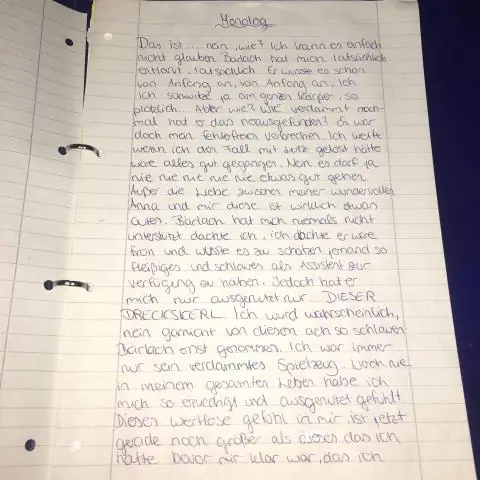 Monolog
Das ist ... nein, wie? Ich kann es einfach
nicht glauben Barlach hat mich tatsächlich
entlarvt, tatsächlich Er wusste es schon
von Anfang an, von Anfang an, Ich
ich schwitze ja am ganzen Körper, so
plötzlich. Aber wie? Wie verdammt noch-
mal hat er das herausgefunden? Es war
doch mein fehlerfreies verbrechen. Ich wette
wenn ich den Fall mit Lutz gelöst hätte
wäre alles gut gegangen. Nein es darf ja
nie nie nie nie nie etwas gut gehen
Außer die Liebe zwischen meiner wundervollen
Anna und mir diese ist wirklich etwas
Gutes. Barlach hat mich niemals nicht
unterstützt dachte ich, ich dachte er wäre
froh und wüsste es zu schätzen jemand so
fleißiges und schlaues als Assistent zur
verfügung zu haben. Jedoch hat er
mich nur ausgenutzt nur. DIESER
DRECKSKERL. Ich wurd wahrscheinlich,
nein garnicht von diesen ach so schlauen
Barlach ernst genommen. Ich war immer
nur sein verdammtes Spielzeug. Noch nie
in meinem gesamten Leben habe ich
mich so erniedrigt und ausgenutzt gefühlt
Dieses wertlose gefühl in mir ist jetzt
gerade noch größer als dieses das ich
hatte bevor mir klar war, das ich